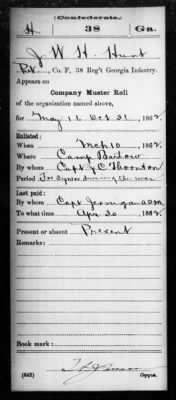 (Confederate.)
H 38 Ga.
J W H Hunt
Pvt, Co. F, 38 Reg't Georgia Infantry.
Appears on
Company Muster Roll
of the organization named above,
for May 11 to Oct 31, 1862
Enlisted:
When Mch 10, 1862
Where Camp Bartow
By whom Capt J C Thornton
Period For 3 years or during the war
Last paid:
By whom Capt Jernigan
To what time Apr 30, 1862
Present or absent Present
Remarks:
Book mark:
(642) Copyist.